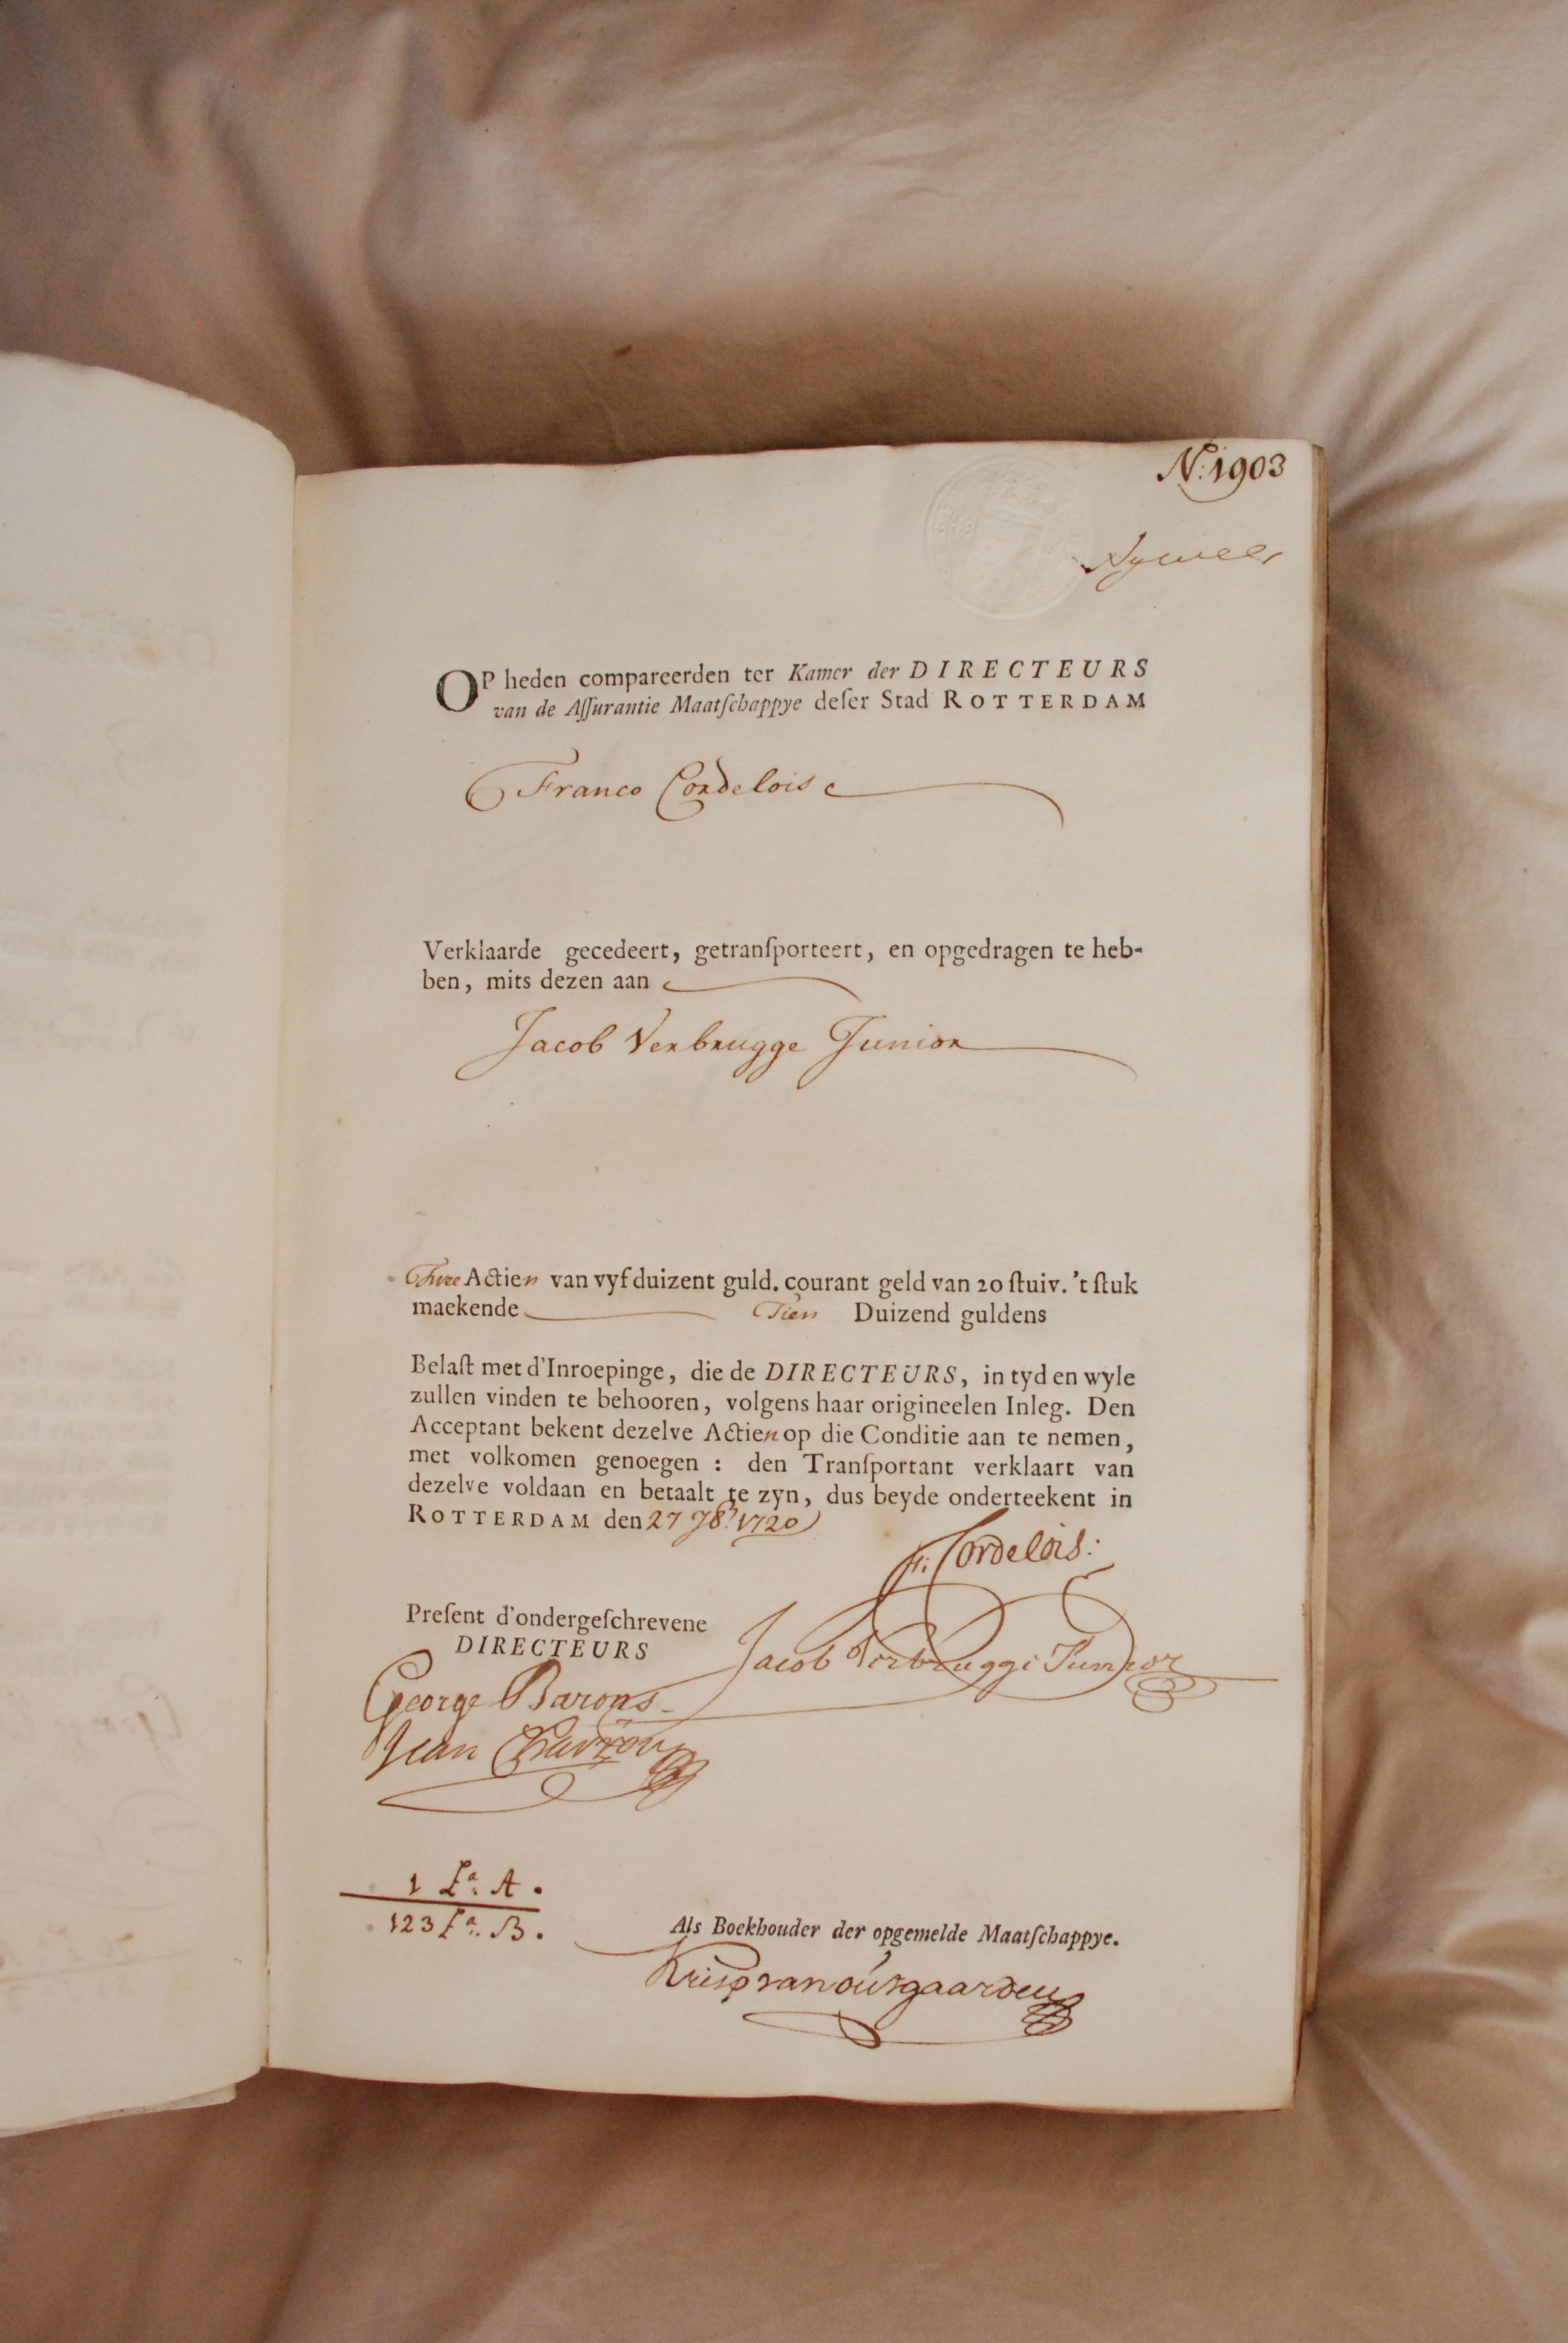 N: 1903
OP heden compareerden ter Kamer der DIRECTEURS
van de Aſſurantie Maatſchappye deſer Stad ROTTERDAM
Franco Cordelois
Verklaarde gecedeert, getranſporteert, en opgedragen te heb-
ben, mits dezen aan
Jacob Verbrugge Junior
Twee Actien van vyf duizent guld. courant geld van 20 ſtuiv. 't ſtuk
maekende Tien Duizend guldens
Belaſt met d'Inroepinge, die de DIRECTEURS, in tyd en wyle
zullen vinden te behooren, volgens haar origineelen Inleg. Den
Acceptant bekent dezelve Actien op die Conditie aan te nemen,
met volkomen genoegen : den Tranſportant verklaart van
dezelve voldaan en betaalt te zyn, dus beyde onderteekent in
ROTTERDAM den 27 7br 1720
F: Cordelois:
Preſent d'ondergeſchrevene
DIRECTEURS
Jacob Verbrugge Junior
George Barons
Jean
1 La. A.
123 La. B.
Als Boekhouder der opgemelde Maatſchappye.